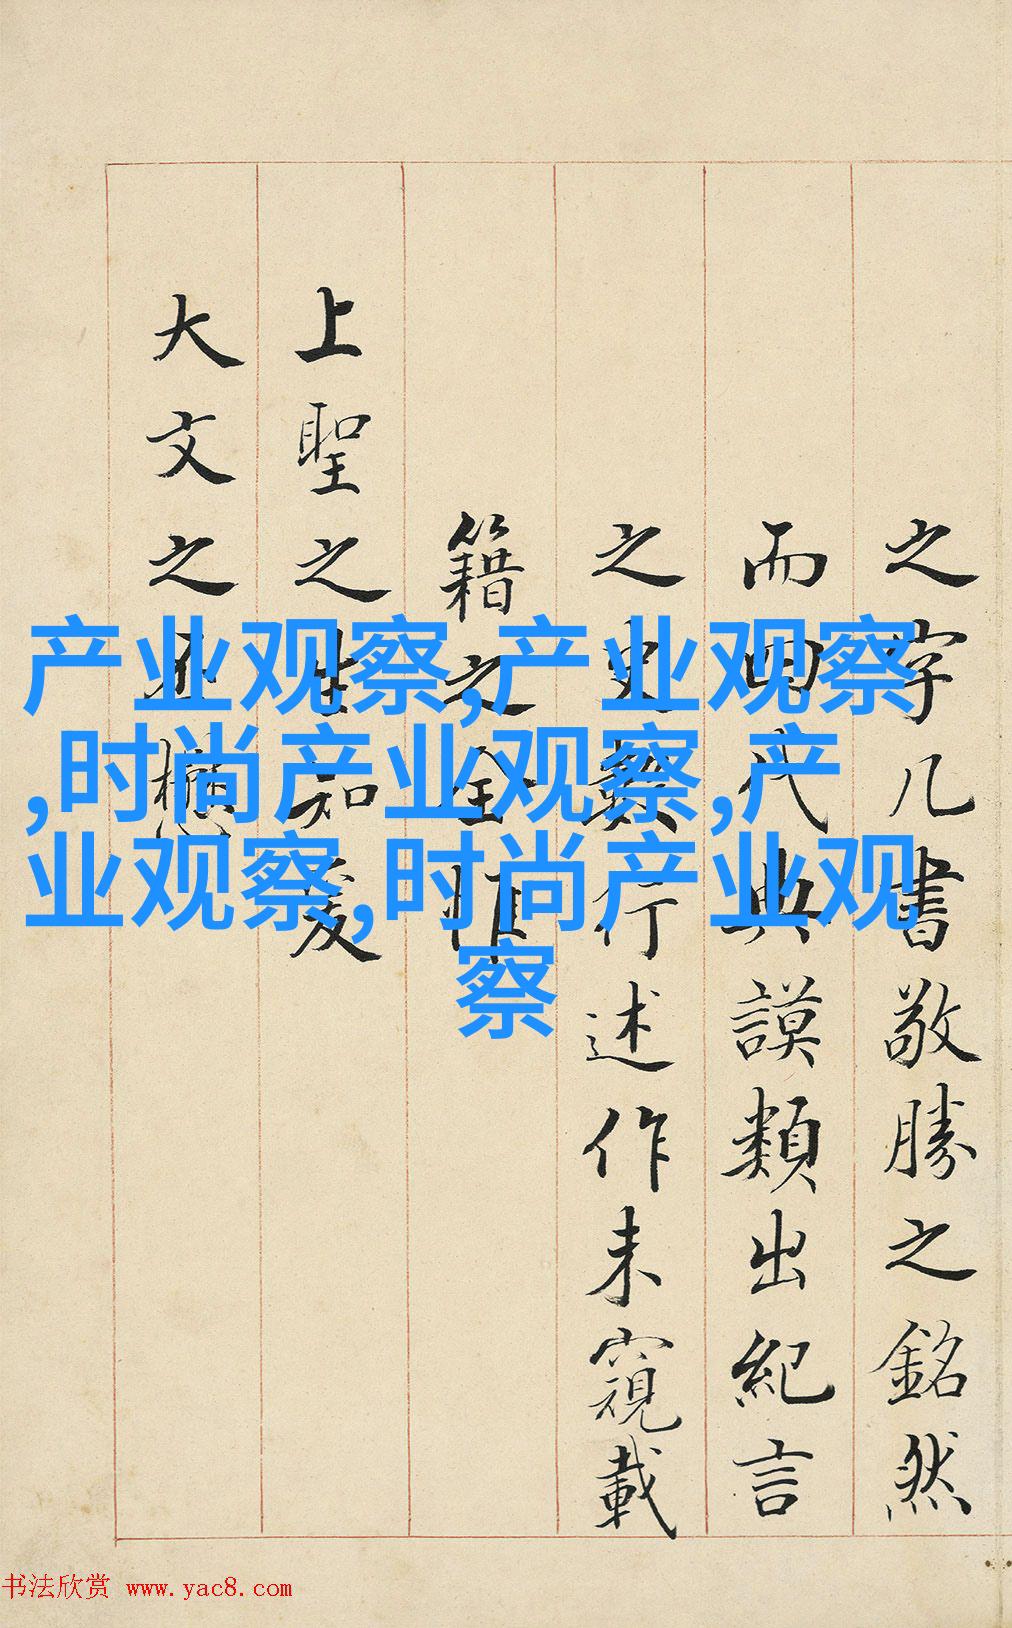 之字几書敬勝之銘然
而四代典謨類出紀言
之史數行述作未窺載
籍之全惟
上聖之生知爰
大文之丕
产业观察,产业观察
,时尚产业观察,产
业观察,时尚产业观
察
书法欣赏 www.yac8.com